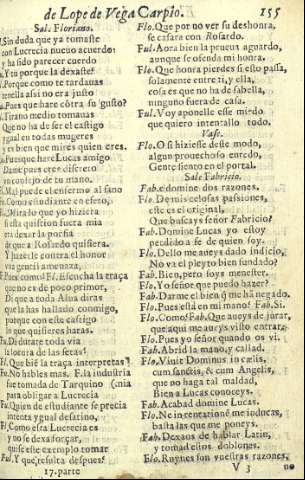 de Lope de Vega Carpio. 155
Sal. Floriano.
Sin duda que ya tomaste
con Lucrecia nueuo acuerdo:
y ha sido parecer cuerdo
Y tu porque la dexaste?
Porque como te tardauas
y ella assi no era justo
Pues que hare côtra su gusto?
Tirano medio tomauas
Que no ha de ser el castigo
ygual en todas mugeres
es bien que mires quien eres.
Pues que hare Lucas amigo
Dame pues eres discreto
vn consejo de tu mano.
Mal puede el enfermo al sano
Como estudiante en efeto,
Mira lo que yo hiziera
si esta question fuera mia
era dexar la porfia
de que a Rosardo quisiera.
Y juzerle contra el honor
vna gentil amenaza,
Pues como? Fl. Escucha la traça
que no es de poco primor,
Di que a toda Alua diras
que la has hallado conmigo,
porque con este castigo
lo que quisieres haras.
Di durate toda via
la locura de las setas?
Fl. Que biê la traça interpretas
No hables mas. Fl. la industria
fue tomada de Tarquino (mia
para obligar a Lucrecia
Quien de estudiante se precia
intenta ygual desatino,
Como essa Lucrecia es
y no se dexa forçar,
quise este exemplo tomar
Y que resulta despues?
17. parte
Flo. Que por no ver su deshonra,
se casara con Rosardo.
Ful. Aora bien la prueua aguardo,
aunque se ofenda mi honra.
Flo. Que honra pierdes si esto passa,
solamente entre ti, y ella,
cosa es que no ha de sabella,
ninguno fuera de casa.
Ful. Voy aponelle esse miedo
que quiero intentallo todo,
Vase.
Flo. O si hiziesse deste modo,
algun prouechoso enredo,
Gente siento en el portal.
Sale Fabricio.
Fab. e domine dos razones.
Flo. De mis celosas passiones,
este es el original,
Que buscays señor Fabricio?
Fab. Domine Lucas yo estoy
perdido a fe de quien soy.
Flo. Dello me aueys dado indicio,
No va el pleyto bien fundado?
Fab. Bien, pero soys menester.
Flo. Yo señor que puedo hazer?
Fab. Darme el bien q̃ me hâ negado.
Flo. Pues està en mi mano? Fab. Si.
Flo. Como? Fab. Que aueys de jurar,
que aqui me aueys visto entrar.
Flo. Pues yo señor quando os vi.
Fab. Abrid la mano, y callad.
Flo. Viuit Dominus in cęlis,
cum sanctis, & cum Angelis,
que no haga tal maldad,
Bien a Lucas conoceys.
Fab. Acabad domine Lucas.
Flo. Ne in tentationẽ me inducas,
basta las que me poneys.
Fab. Dexaos de hablar Latin,
y tomad estos doblones.
Flo. Ruynes son vuestras razones,
V 3 no